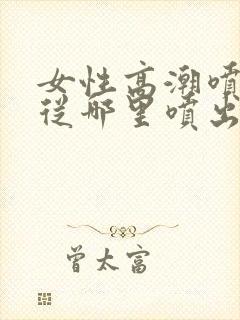 女性高潮噴
從哪里噴出
曾太富